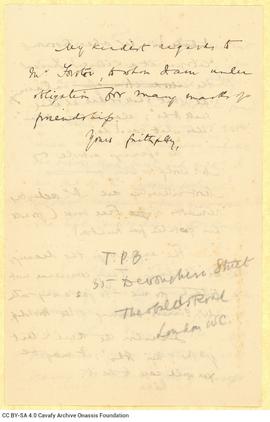 My kindest regards to
Mr Forster, to whom I am under
obligation for many marks of
friendship
Yours faithfully,
T. P. B.
55 Devonshire Street
Theobalds Road
London W.C.
CC BY-SA 4.0 Cavafy Archive Onassis Foundation